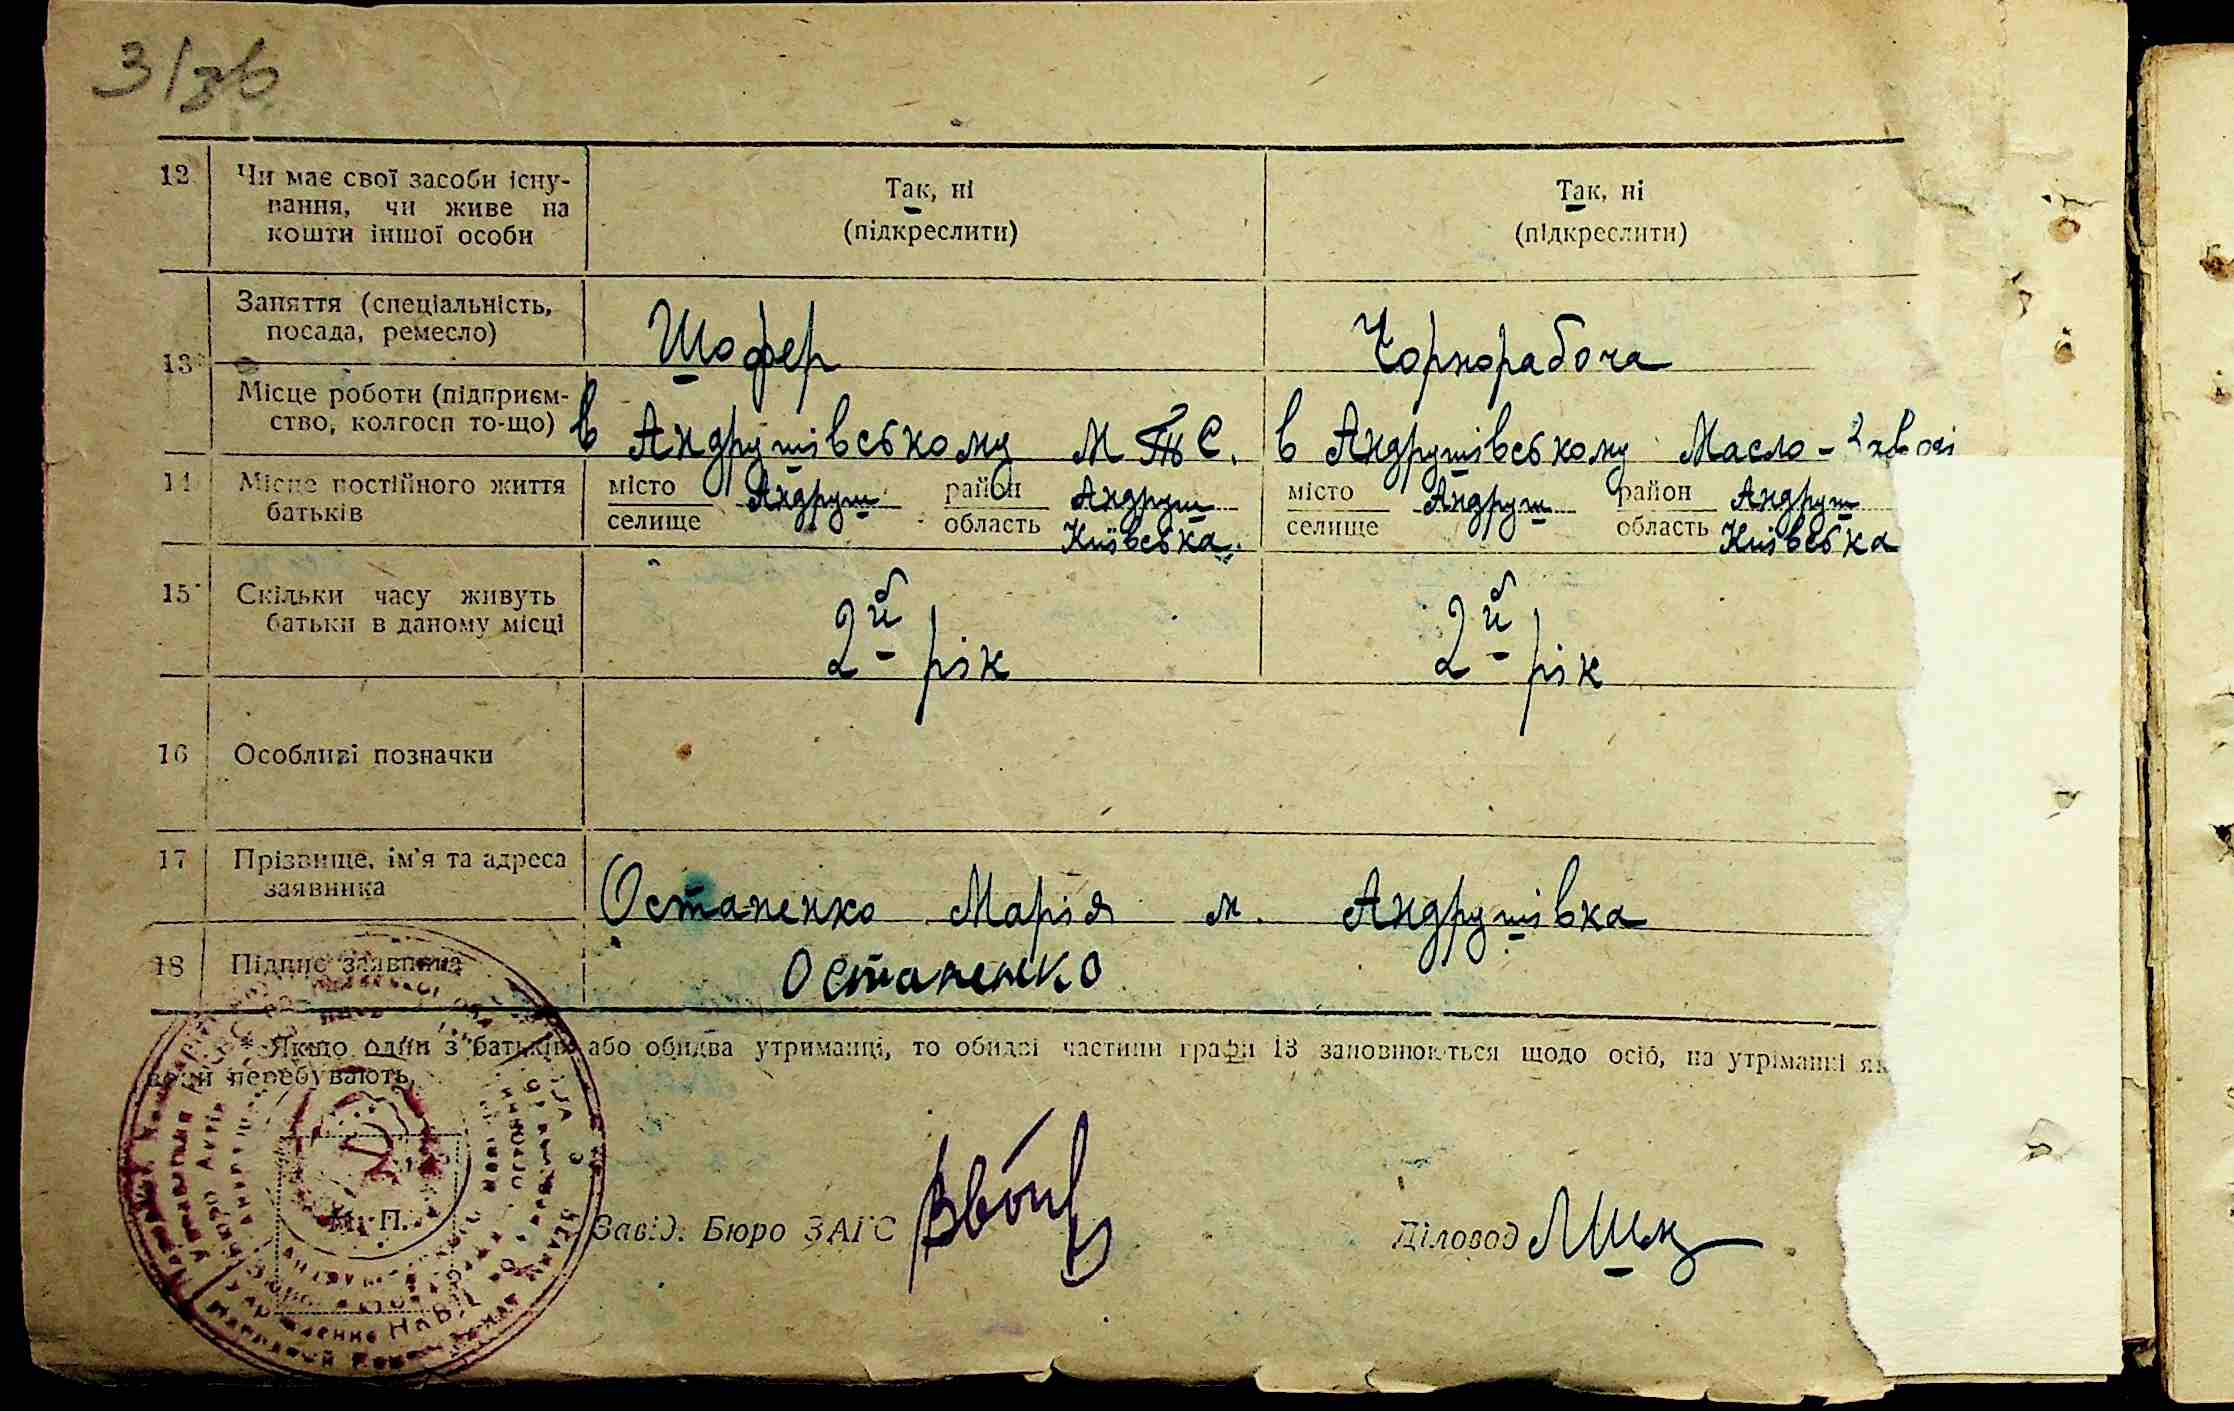 3/зв
12 Чи має свої засоби існу- Так, ні Так, ні
вання, чи живе на (підкреслити) (підкреслити)
кошти іншої особи
Заняття (спеціальність, Шофер Чорнорабоча
посада, ремесло)
13
Місце роботи (підприєм- в Андрушівському МТС. в Андрушівському Масло-Заводі
ство, колгосп то-що)
14 Місце постійного життя місто Андруш район Андруш місто Андруш район Андруш
батьків селище область Київська. селище область Київська
15 Скільки часу живуть 2й рік 2й рік
батьки в даному місці
16 Особливі позначки
17 Прізвище, ім'я та адреса Остапенко Марія м. Андрушівка
заявника
18 Підпис заявника Остапенко
* Якщо один з батьків або обидва утриманці, то обидві частини графи 13 заповнюються щодо осіб, на утріманні як
вони перебувають.
М. П.
Завід. Бюро ЗАГС Діловод